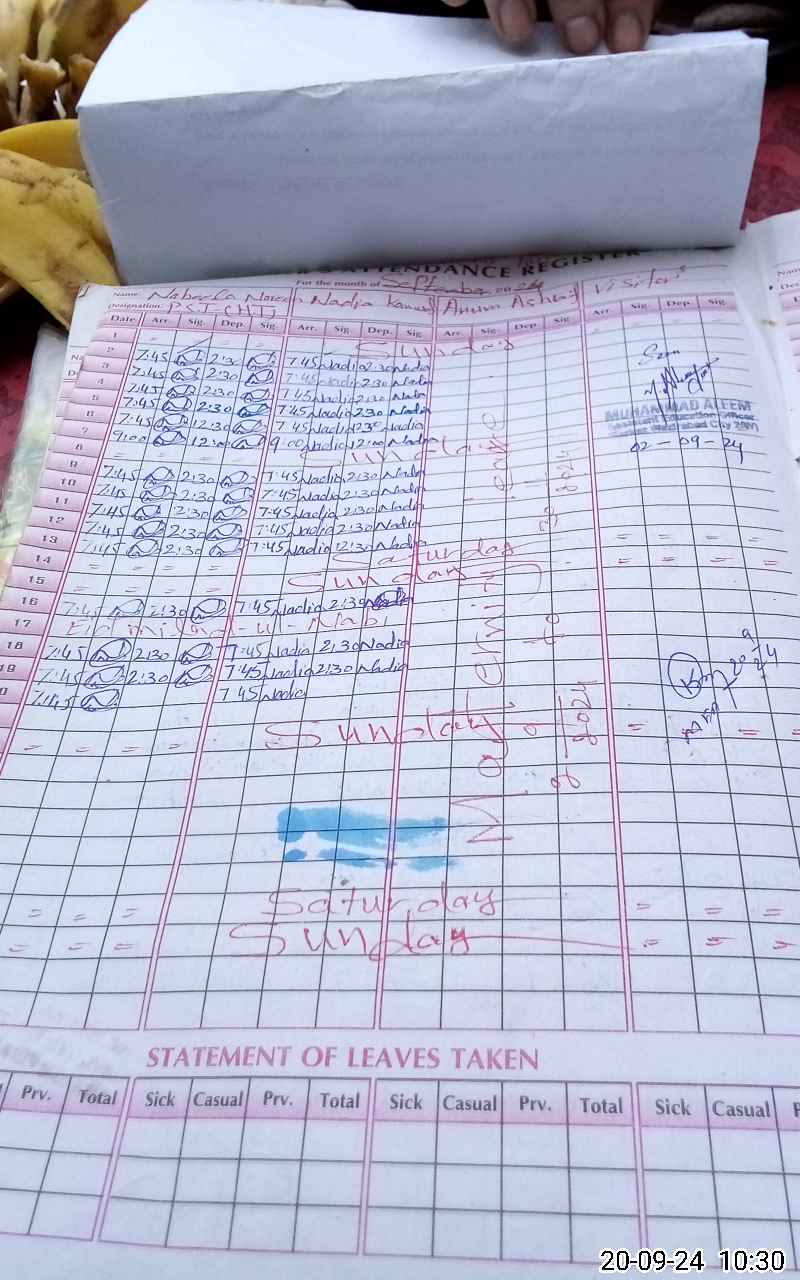 ATTENDANCE REGISTER
For the month of September 2024
Name: Nabeela Nadia Anum Ashraf Visitors
Designation: P.S.T
Date Arr. Sig. Dep. Sig. Arr. Sig. Dep. Sig. Arr. Sig. Dep. Sig. Arr. Sig. Dep. Sig.
1 Sunday
2 7:45 2:30 7:45 Nadia 2:30 Nadia
3 7:45 2:30 7:45 Nadia 2:30 Nadia
4 7:45 2:30 7:45 Nadia 2:30 Nadia
5 7:45 2:30 7:45 Nadia 2:30 Nadia
6 7:45 12:30 7:45 Nadia Nadia
7 9:00 12:00 9:00 Nadia 12:00 Nadia
8
MUHAMMAD ALEEM
Assistant Education Officer
02-09-24
9 7:45 2:30 7:45 Nadia 2:30 Nadia
10 7:45 2:30 7:45 Nadia 2:30 Nadia
11 7:45 2:30 7:45 Nadia 2:30 Nadia
12 7:45 2:30 7:45 Nadia 2:30 Nadia
13 7:45 2:30 7:45 Nadia 12:30 Nadia
14 Saturday
15 Sunday
16 7:45 2:30 7:45 Nadia 2:30
17 Eid milad-u-Nabi
18 7:45 2:30 7:45 Nadia 2:30 Nadia
19 7:45 2:30 7:45 Nadia 2:30 Nadia
7:45 7:45 Nadia
20/9/24
Sunday
Maternity Leave
2024
to
2024
Saturday
Sunday
STATEMENT OF LEAVES TAKEN
Prv. Total Sick Casual Prv. Total Sick Casual Prv. Total Sick Casual
20-09-24 10:30